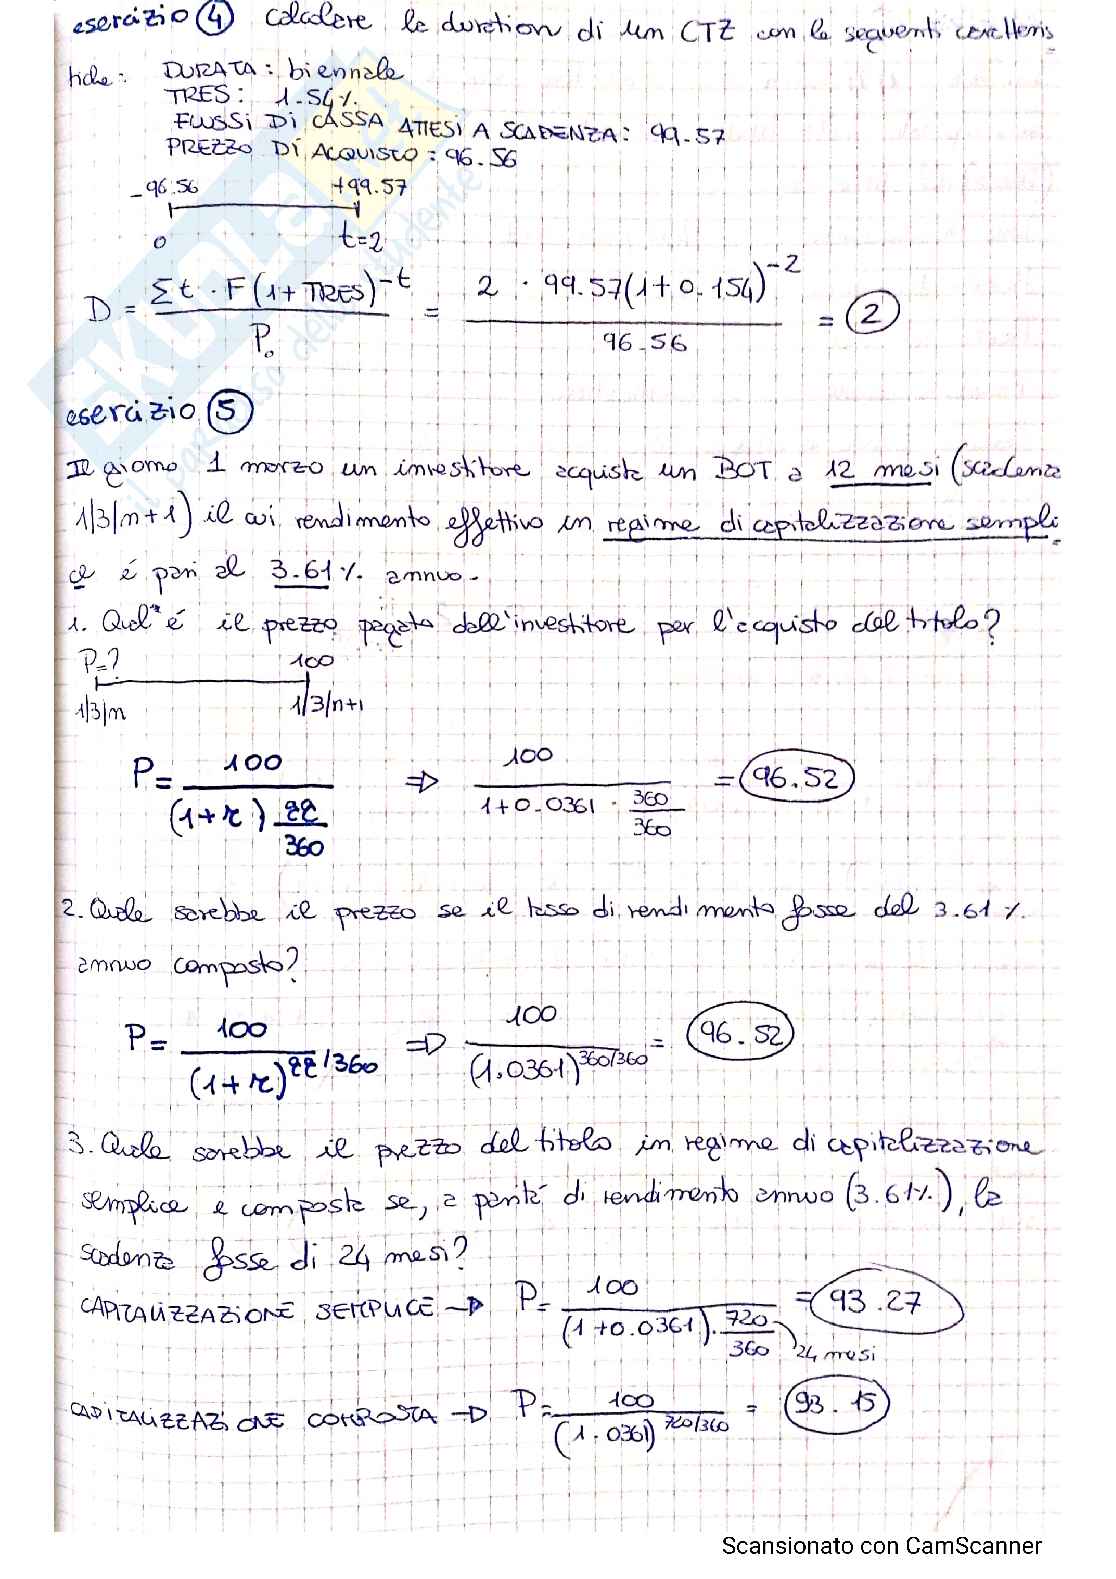 esercizio 4 calcolare la duration di un CTZ con le seguenti caratteris
tiche: DURATA: biennale
TRES: 1.54%
FLUSSI DI CASSA ATTESI A SCADENZA: 99.57
PREZZO DI ACQUISTO: 96.56
-96.56 +99.57
0 t=2
D = Σt · F(1+TRES)^-t / P₀ = 2 · 99.57(1+0.154)^-2 / 96.56 = 2
esercizio 5
Il giorno 1 marzo un investitore acquista un BOT a 12 mesi (scadenza
1/3/n+1) il cui rendimento effettivo in regime di capitalizzazione sempli
ce é pari al 3.61% annuo.
1. Qual'é il prezzo pagato dall'investitore per l'acquisto del titolo?
P=? 100
1/3/n 1/3/n+1
P = 100 / (1+r) gg/360 ⇒ 100 / 1+0.0361 · 360/360 = 96.52
2. Quale sarebbe il prezzo se il tasso di rendimento fosse del 3.61%
annuo composto?
P = 100 / (1+r)^gg/360 ⇒ 100 / (1.0361)^360/360 = 96.52
3. Quale sarebbe il prezzo del titolo in regime di capitalizzazione
semplice e composta se, a parità di rendimento annuo (3.61%), la
scadenza fosse di 24 mesi?
CAPITALIZZAZIONE SEMPLICE → P = 100 / (1+0.0361) · 720/360 = 93.27
24 mesi
CAPITALIZZAZIONE COMPOSTA → P = 100 / (1.0361)^720/360 = 93.15
Scansionato con CamScanner